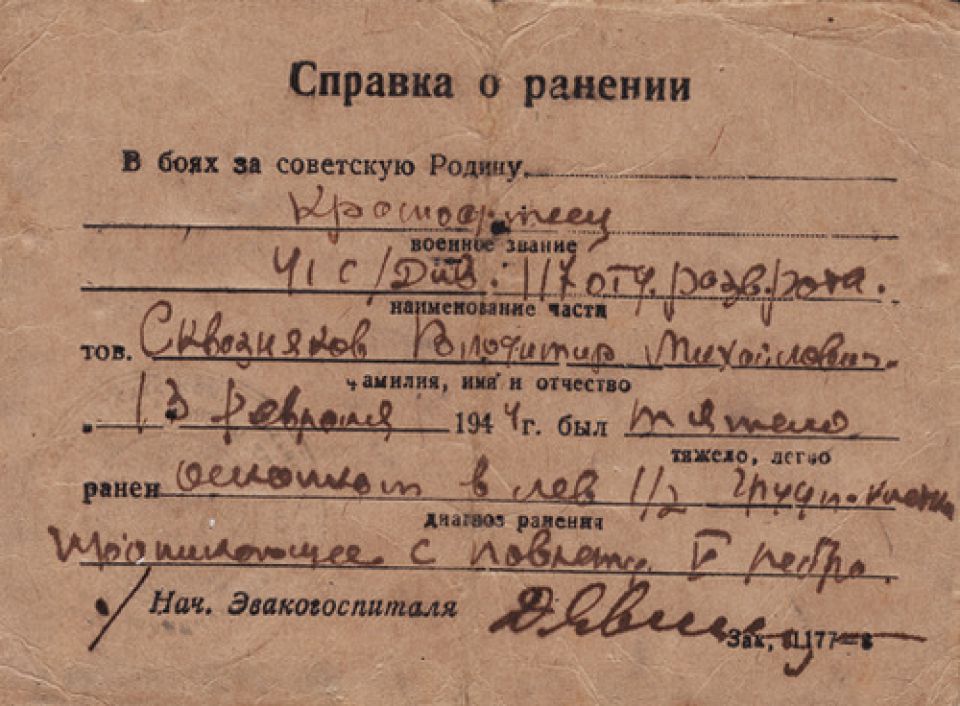 Справка о ранении
В боях за советскую Родину
Красноармеец
военное звание
41 с/Див. 117 отд. разв. рота.
наименование части
тов. Сквозняков Владимир Михайлович
фамилия, имя и отчество
13 февраля 1944 г. был тяжело
тяжело, легко
ранен осколком в лев 1/2 груд. клетки
диагноз ранения
проникающее с поврежд. V ребра.
Нач. Эвакогоспиталя
Зак,